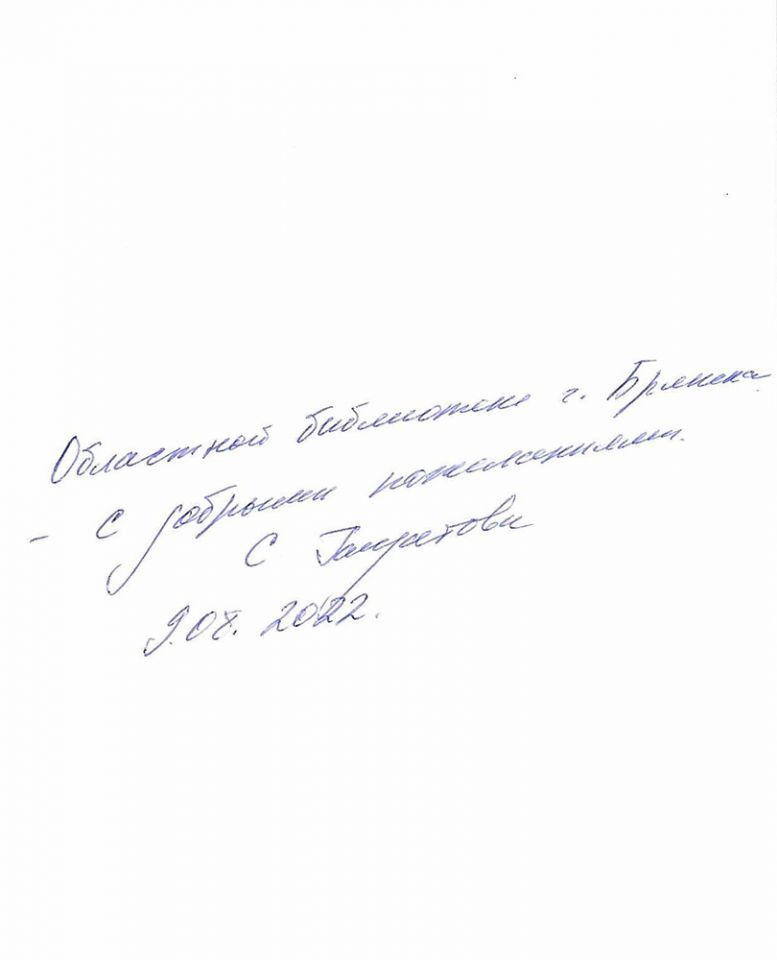 Областной библиотеке г. Брянска
- С добрыми пожеланиями.
С
9.08.2022.